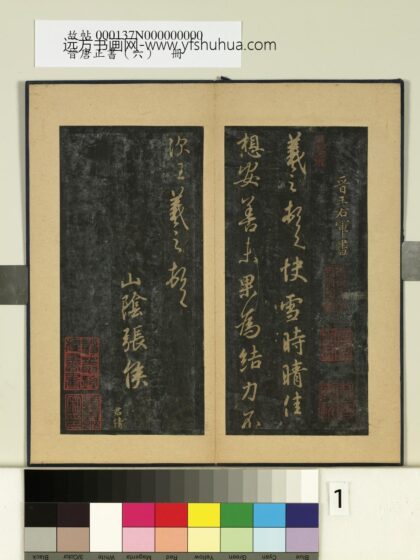 故帖 000137N000000000
远方书画网-www.yfshuhua.com
晉唐正書（六） 冊
晉王右軍書
羲之頓首快雪時晴佳
想安善未果為結力不
次王羲之頓首
山陰張侯
君倩
1
Black
3/Color
White
Magenta
Red
Yellow
Green
Cyan
Blue